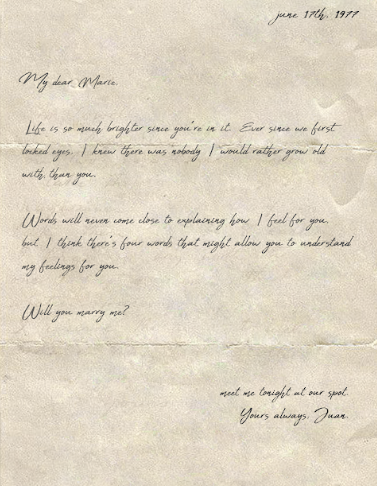 june 17th, 1977
My dear Marie,
Life is so much brighter since you're in it. Ever since we first
locked eyes, I knew there was nobody I would rather grow old
with, than you.
Words will never come close to explaining how I feel for you,
but I think there's four words that might allow you to understand
my feelings for you.
Will you marry me?
meet me tonight at our spot.
Yours always, Juan.